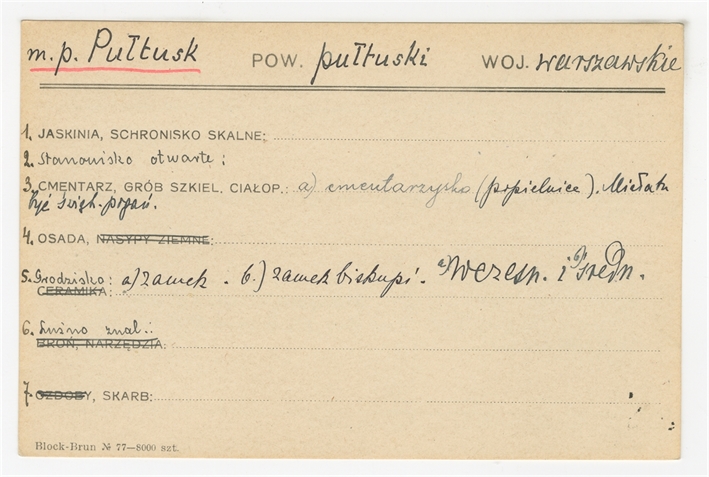 m.p. Pułtusk POW. pułtuski WOJ. warszawskie
1. JASKINIA, SCHRONISKO SKALNE:
2. Stanowisko otwarte:
3. CMENTARZ, GRÓB SZKIEL. CIAŁOP.: a) cmentarzysko (popielnice). Miała tu
być świąt. pogań.
4. OSADA, NASYPY ZIEMNE:
5. Grodzisko: a) zamek. b.) zamek biskupi. a) Wczesn. i b) Średn.
CERAMIKA:
6. Luźno znal.:
BROŃ, NARZĘDZIA:
7. OZDOBY, SKARB:
Block-Brun № 77—8000 szt.